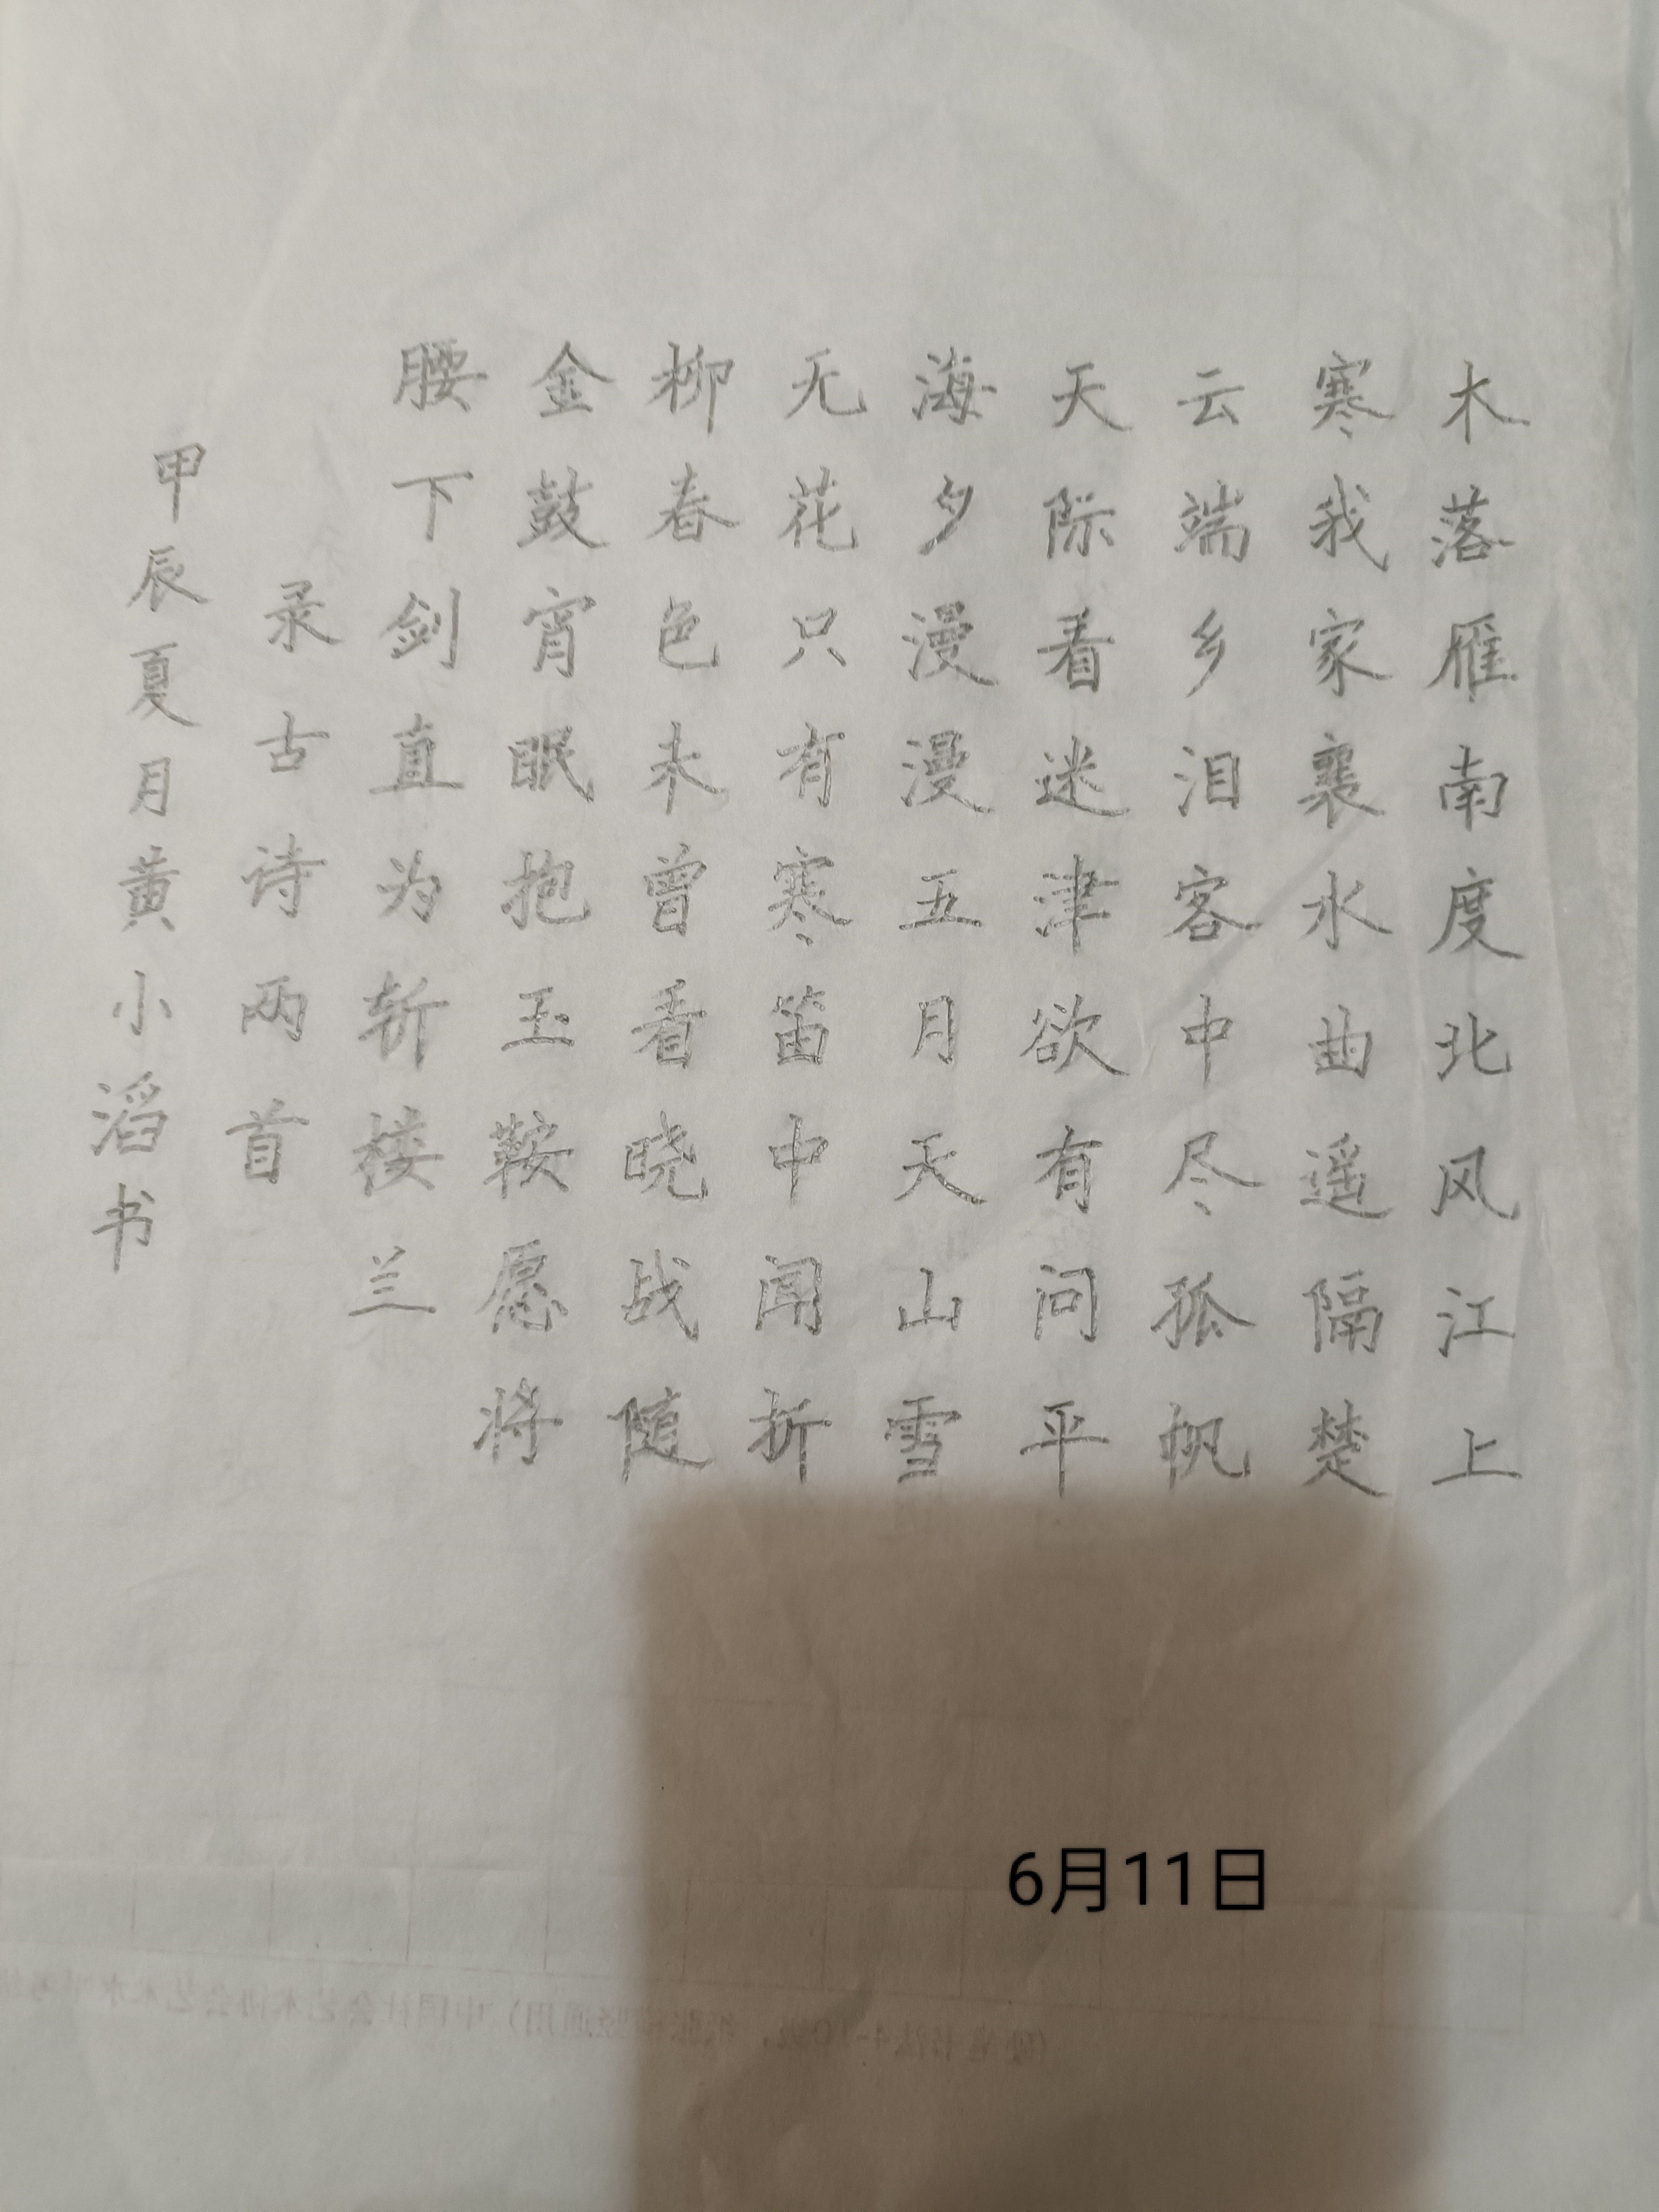 木落雁南度北风江上
寒我家襄水曲遥隔楚
云端乡泪客中尽孤帆
天际看迷津欲有问平
海夕漫漫五月天山雪
无花只有寒笛中闻折
柳春色未曾看晓战随
金鼓宵眠抱玉鞍愿将
腰下剑直为斩楼兰
录古诗两首
甲辰夏月黄小滔书
6月11日